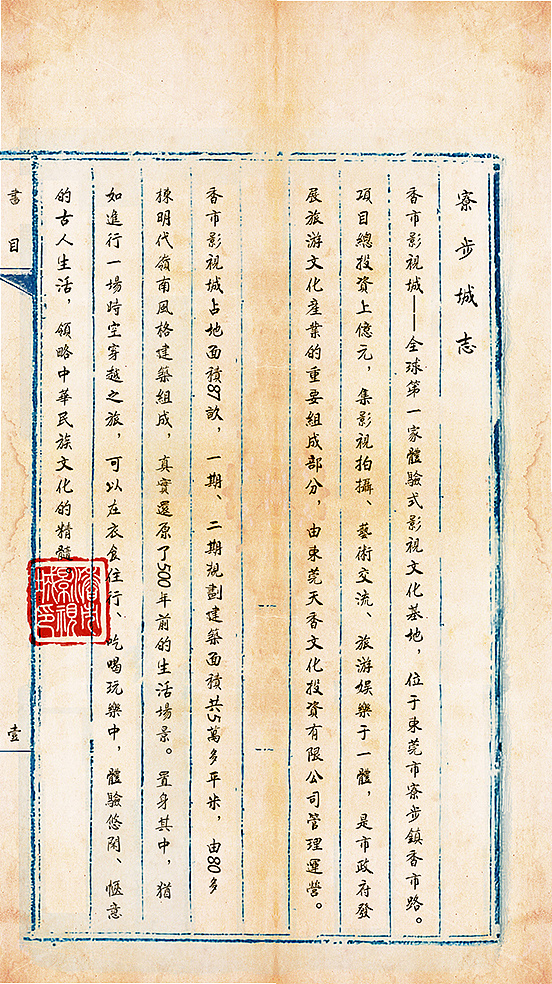 寮步城志
香市影視城——全球第一家體驗式影視文化基地，位于東莞市寮步鎮香市路。
項目總投資上億元，集影視拍攝、藝術交流、旅游娛樂于一體，是市政府發
展旅游文化産業的重要組成部分，由東莞天香文化投資有限公司管理運營。
香市影視城占地面積87畝，一期、二期規劃建築面積共5萬多平米，由80多
棟明代嶺南風格建築組成，真實還原了500年前的生活場景。置身其中，猶
如進行一場時空穿越之旅，可以在衣食住行、吃喝玩樂中，體驗悠閑、愜意
的古人生活，領略中華民族文化的精髓
書目
壹
香市影視城印